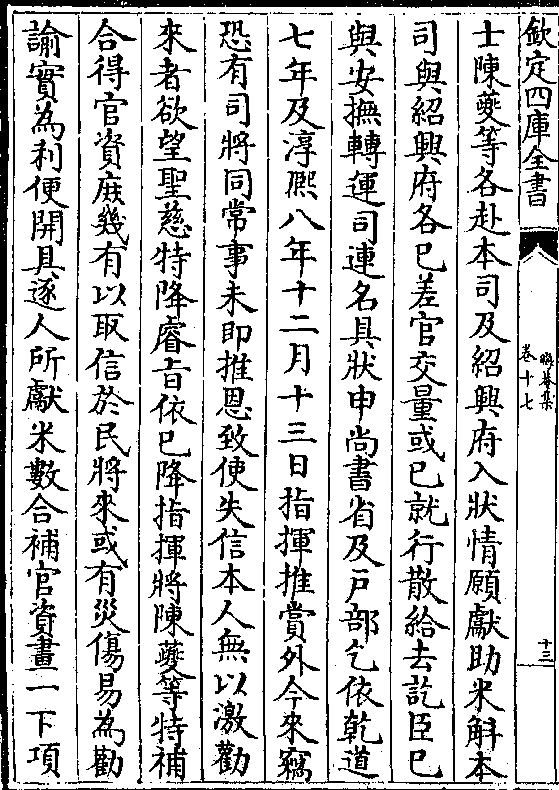 欽定四庫全書
晦菴集
卷十七
十三
士陳夔等各赴本司及紹興府入狀情願獻助米斛本
司與紹興府各已差官交量或已就行散給去訖臣已
與安撫轉運司連名具狀申尚書省及戸部乞依乾道
七年及淳熈八年十二月十三日指揮推賞外今來竊
恐有司將同常事未即推恩致使失信本人無以激勸
來者欲望聖慈特降睿旨依已降指揮將陳夔等特補
合得官資庶幾有以取信於民將來或有災傷易為勸
諭實為利便開具逐人所獻米數合補官資畫一下項